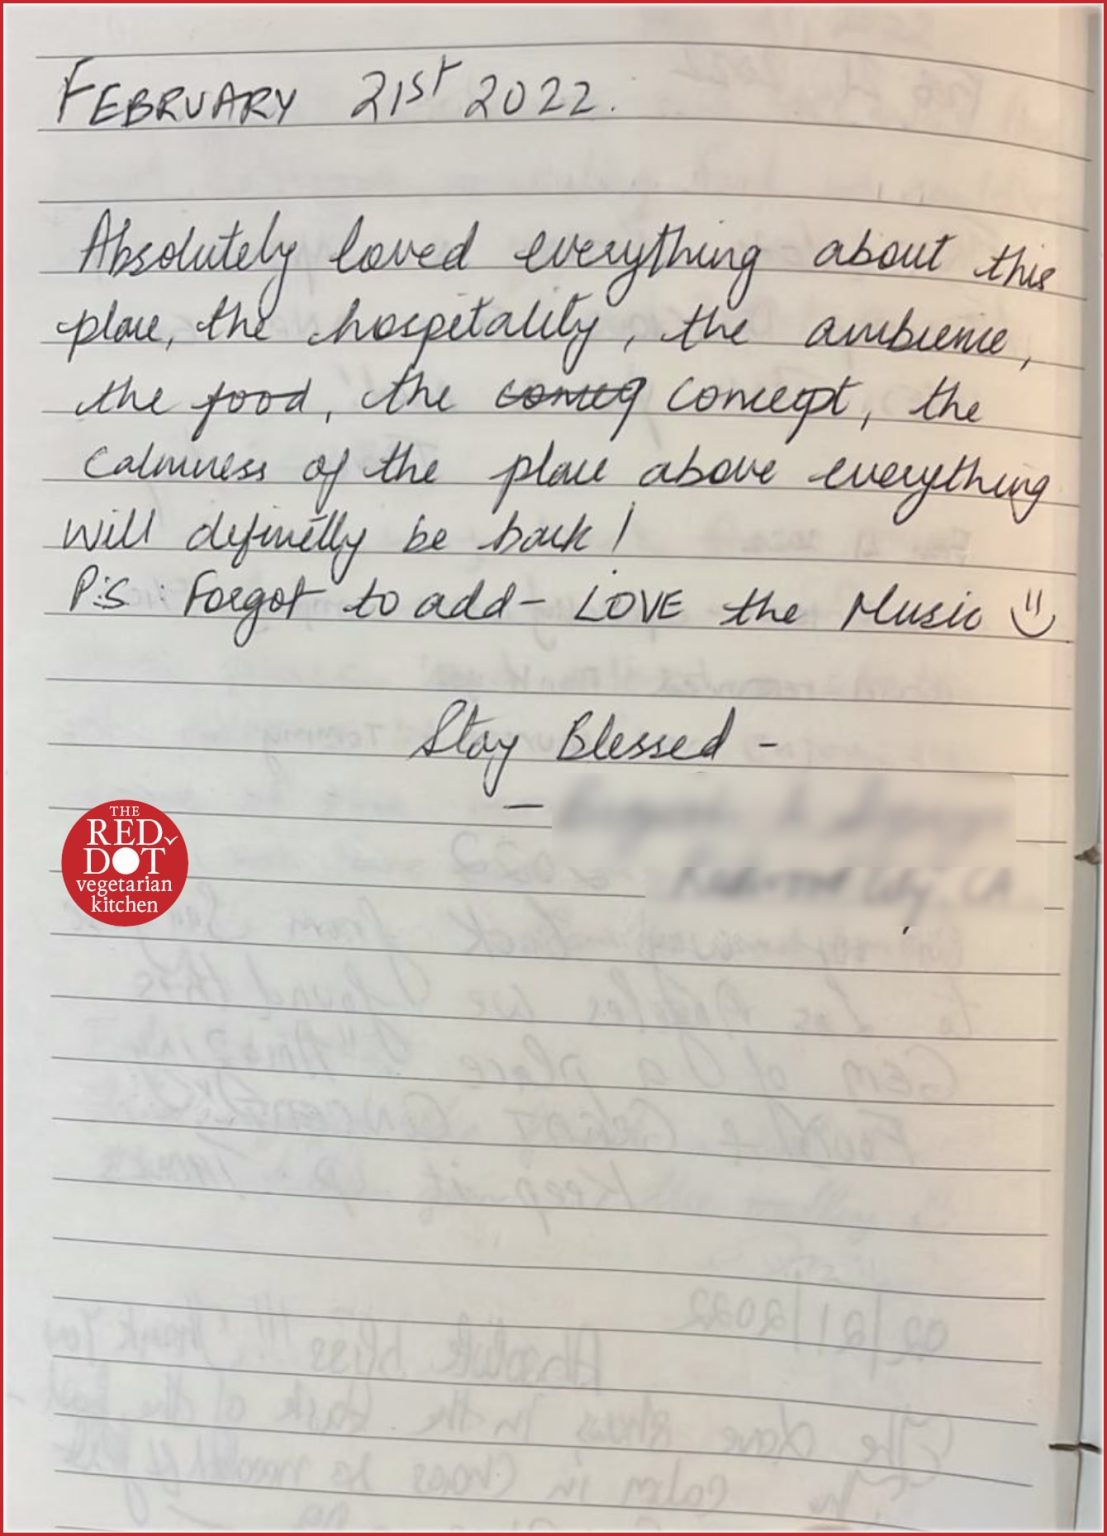 FEBRUARY 21ST 2022.
Absolutely loved everything about this
place, the hospitality, the ambience,
the food, the concept, the
calmness of the place above everything
will definetly be back!
P.S: Forgot to add - LOVE the Music
Stay Blessed -
THE
RED
DOT
vegetarian
kitchen